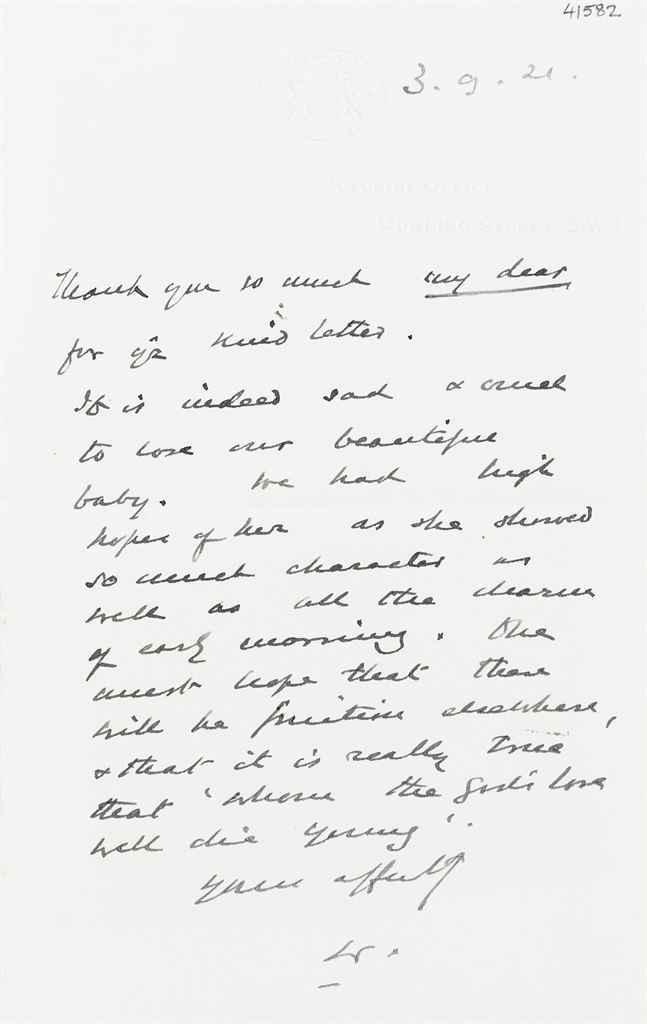 41582
3. 9. 21.
Thank you so much my dear
for yr kind letter.
It is indeed sad & cruel
to lose our beautiful
baby. We had high
hopes of her as she showed
so much character as
well as all the charm
of early morning. One
must hope that there
will be fruition elsewhere,
& that it is really true
that 'whom the gods love
well die young'.
Your affntly
W.